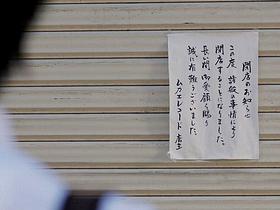 閉店のお知らせ
この度 諸般の事情により
閉店することになりました。
長い間 御愛顧を賜り
誠に有難うございました。
ムカエレコード 店主